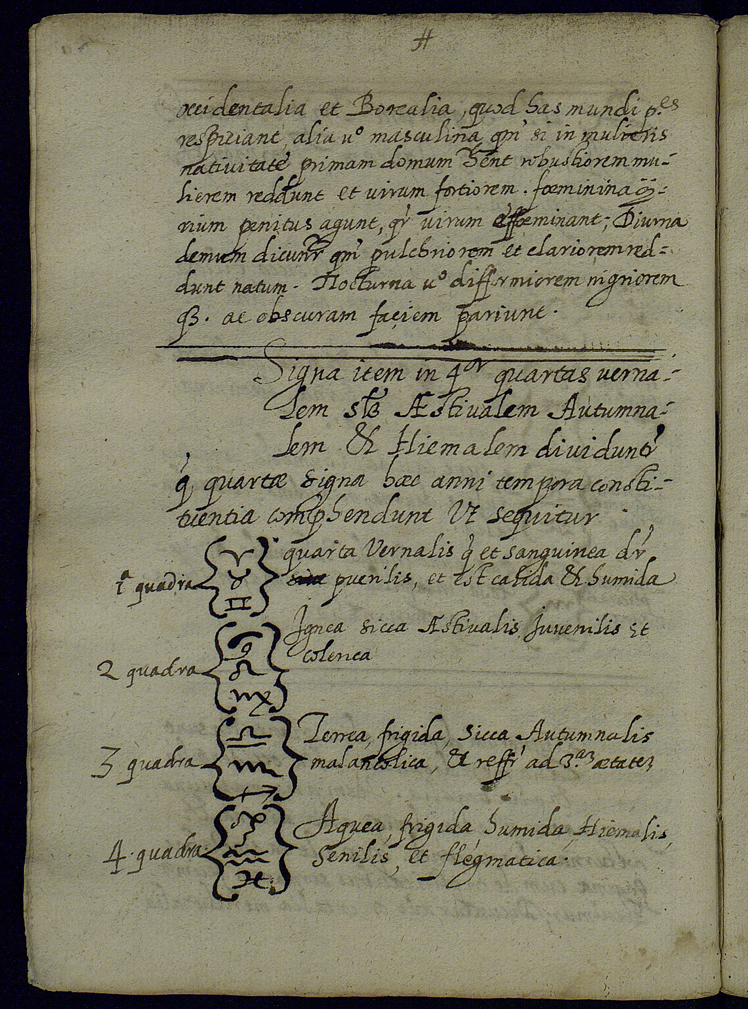 4
occidentalia et Borealia, quod has mundi p.es
respiciant, alia uº masculina, qm̃ si in mulieris
nativitatẽ primam domum hẽnt robustiorem mu-
lierem reddunt et virum fortiorem. fœminina
rium penitus agunt, qr̃ virum effœminant; Diurna
demum dicunr̃ qm̃ pulchriorem et clarioremred-
dunt natum. Nocturna uº difformiorem nigriorem
q3. ac obscuram façiem pariunt.
Signa item in 4or quartas verna-
lem Æstivalem Autumna-
lem & Hiemalem dividuntr̃
q̃ quartæ signa hæc anni tempora consti-
tuentia comp̃hendunt Vt sequitur
1ª quadra ♈ ♉ ♊ quarta Vernalis q̃ et sanguinea dr̃
puerilis, et est calida & humida
2 quadra ♋ ♌ ♍ Ignea sicca Æstivalis Juvenilis et
colerica
3 quadra ♎ ♏ ♐ Terrea, frigida, sicca Autumnalis
malancolica, & reffr̃ ad 3.am ætatez
4. quadra ♑ ♒ ♓ Aquea, frigida humida, Hiemalis,
Senilis, et flegmatica.